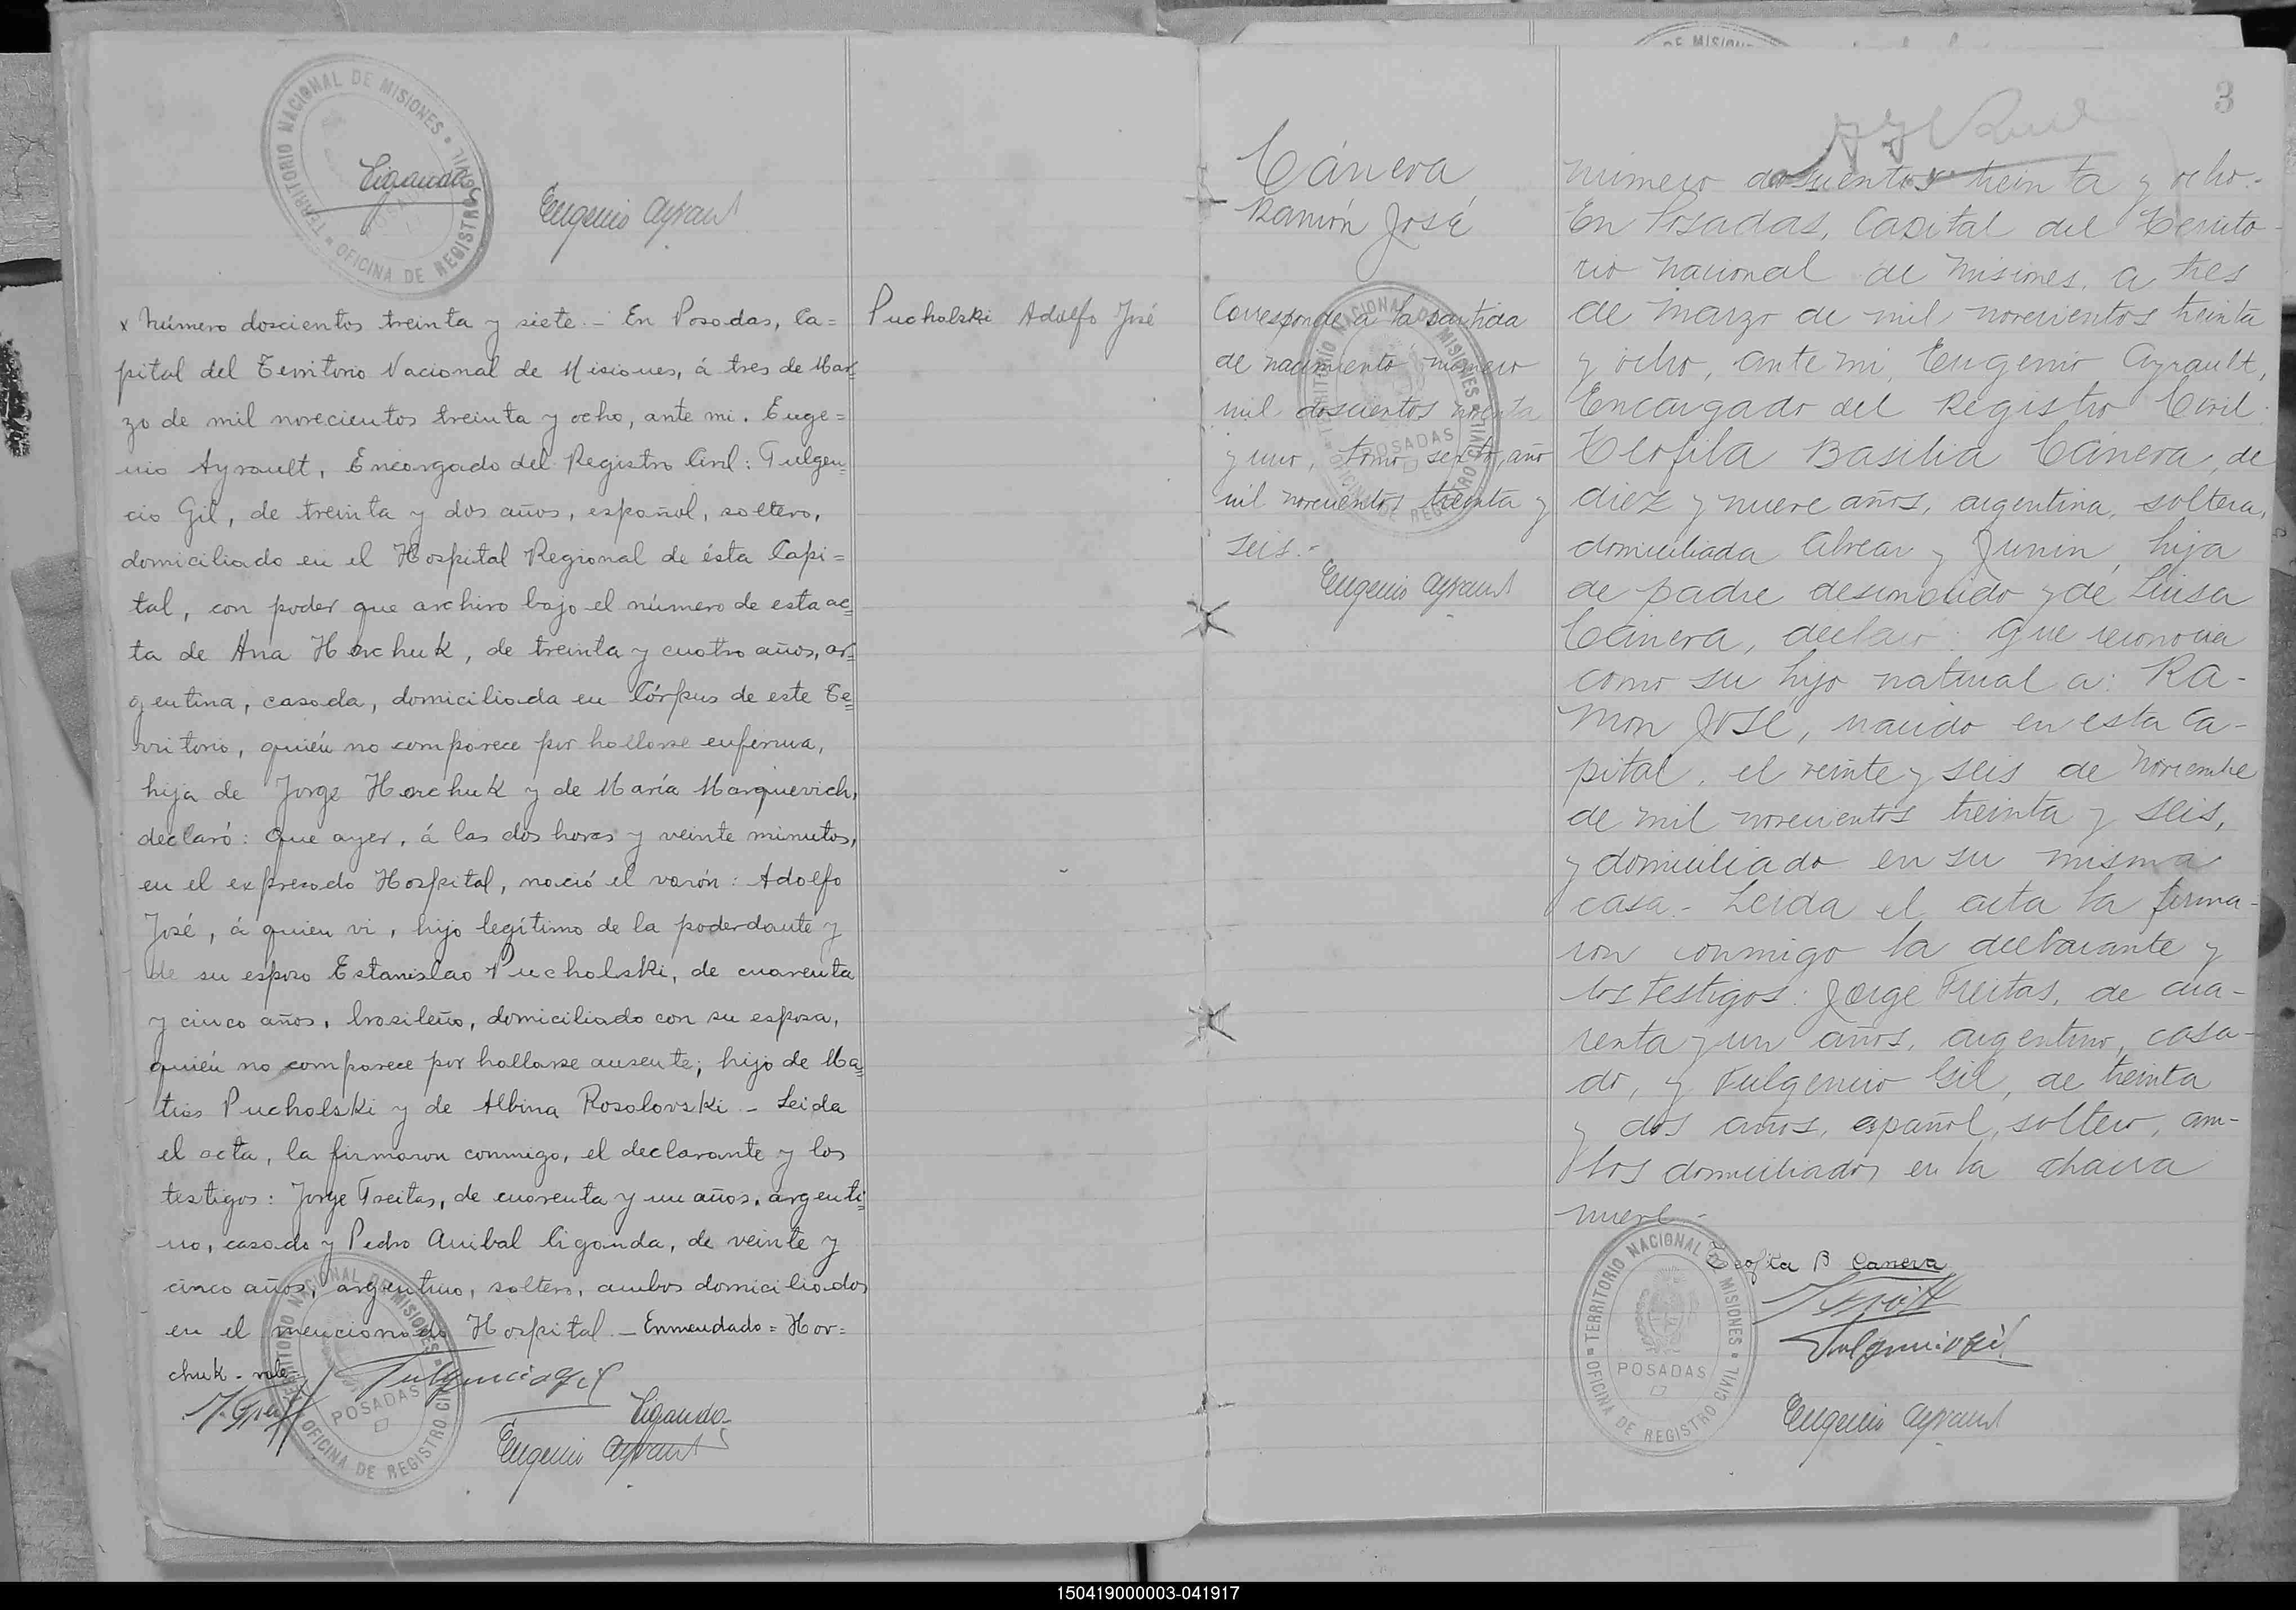 TERRITORIO NACIONAL DE MISIONES
OFICINA DE REGISTRO CIVIL
Eugenio Ayrault
x Número doscientos treinta y siete.- En Posadas, Ca=
pital del Territorio Nacional de Misiones, á tres de Mar=
zo de mil novecientos treinta y ocho, ante mi. Euge=
nio Ayrault, Encargado del Registro Civil: Fulgen=
cio Gil, de treinta y dos años, español, soltero,
domiciliado en el Hospital Regional de ésta Capi=
tal, con poder que archivo bajo el número de esta ac=
ta de Ana Horchuk, de treinta y cuatro años, ar=
gentina, casada, domiciliada en Córpus de este Te=
rritorio, quién no comparece por hallarse enferma,
hija de Jorge Horchuk y de María Marquevich,
declaró: Que ayer, á las dos horas y veinte minutos,
en el expresado Hospital, nació el varón: Adolfo
José, á quien vi, hijo legítimo de la poderdante y
de su esposo Estanislao Pucholski, de cuarenta
y cinco años, brasileño, domiciliado con su esposa,
quién no comparece por hallarse ausente; hijo de Ma=
tias Pucholski y de Albina Rosolovski - Leida
el acta, la firmaron conmigo, el declarante y los
testigos: Jorge Freitas, de cuarenta y un años, argenti=
no, casado y Pedro Anibal Ciganda, de veinte y
cinco años, argentino, soltero, ambos domiciliados
en el mencionado Hospital. - Enmendado = Hor=
chuk - vale.
Fulgencio Gil
Ciganda
Eugenio Ayrault
TERRITORIO NACIONAL DE MISIONES
POSADAS
OFICINA DE REGISTRO CIVIL
Pucholski Adolfo José
Cánera
Ramón José
Corresponde a la partida
de nacimiento número
mil doscientos noventa
y uno, tomo sexto, año
mil novecientos treinta y
seis.-
Eugenio Ayrault
TERRITORIO NACIONAL DE MISIONES
POSADAS
OFICINA DE REGISTRO CIVIL
DE MISIONES
3
Número doscientos treinta y ocho.-
En Posadas, Capital del Territo-
rio Nacional de Misiones, a tres
de Marzo de mil novecientos treinta
y ocho, ante mi, Eugenio Ayrault,
Encargado del Registro Civil:
Teofila Basilia Cánera, de
diez y nueve años, argentina, soltera,
domiciliada Alvear y Junin, hija
de padre desconocido y de Luisa
Cánera, declaró: Que reconocia
como su hijo natural a: Ra-
mon José, nacido en esta Ca-
pital, el veinte y seis de Noviembre
de mil novecientos treinta y seis,
y domiciliado en su misma
casa.- Leida el acta la firma-
ron conmigo la declarante y
los testigos: Jorge Freitas, de cua-
renta y un años, argentino, casa-
do, y Fulgencio Gil, de treinta
y dos años, español, soltero, am-
bos domiciliados en la chacra
nueve.-
Teofila B Canera
Fulgencio Gil
Eugenio Ayrault
TERRITORIO NACIONAL DE MISIONES
POSADAS
OFICINA DE REGISTRO CIVIL
150419000003-041917